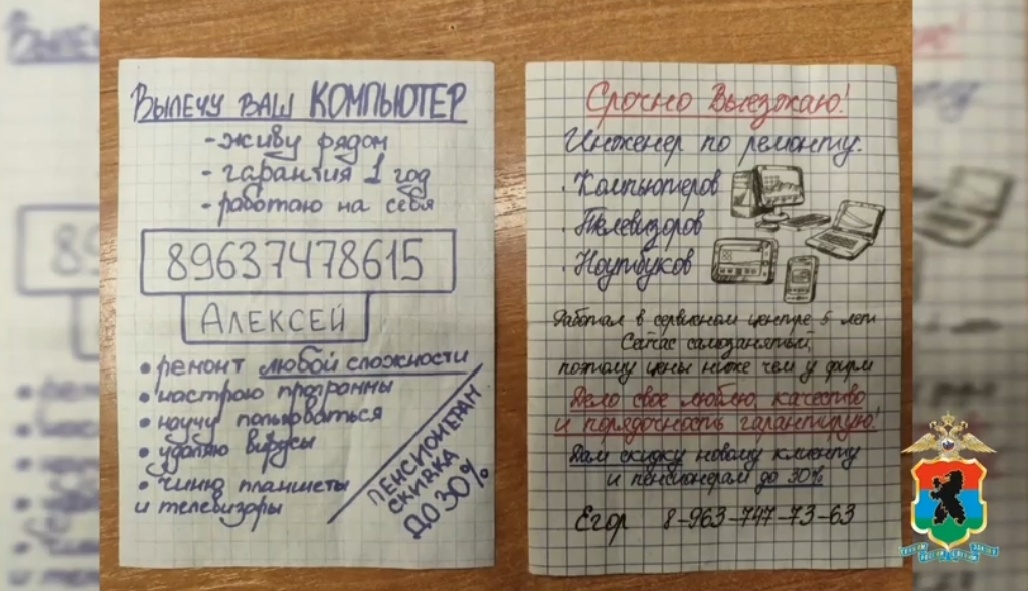 Вылечу ваш КОМПЬЮТЕР
- живу рядом
- гарантия 1 год
- работаю на себя
89637478615
Алексей
• ремонт любой сложности
• настрою программы
• научу пользоваться
• удаляю вирусы
• чиню планшеты
и телевизоры
Пенсионерам
скидка
до 30%
Срочно Выезжаю!
Инженер по ремонту:
. Компьютеров
. Телевизоров
. Ноутбуков
Работал в сервисном центре 5 лет
Сейчас самозанятый,
поэтому цены ниже чем у фирм
Дело свое люблю, качество
и порядочность гарантирую!
Дам скидку новому клиенту
и пенсионерам до 30%
Егор 8-963-747-73-63